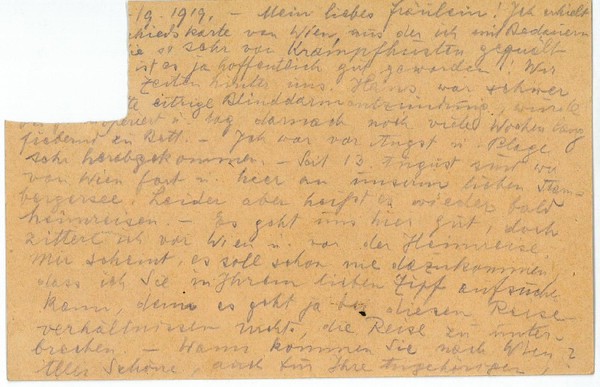 /9. 1919. – Mein liebes Fräulein! Ich erhielt
chiedskarte von Wien, aus der ich mit Bedauern
Sie so sehr von Krampfhusten gequält
ist es ja hoffentlich gut geworden! Wir
Zeiten hinter uns. Hans war schwer
eitrige Blinddarmentzündung, wurde
operiert u. lag darnach noch viele Wochen lang
fiebernd zu Bett. – Ich war vor Angst u. Plage
sehr herabgekommen. – Seit 13. August sind wir
von Wien fort u. hier an unserem lieben Starn-
bergersee. Leider aber heißt es wieder bald
heimreisen. – Es geht uns hier gut, doch
zittert ich vor Wien u. vor der Heimreise.
Mir scheint, es soll schon nie dazukommen,
dass ich Sie in Ihrem lieben Zipf aufsuchen
kann, denn es geht ja bei diesen Reise
verhältnissen nicht, die Reise zu unter-
brechen. – Wann kommen Sie nach Wien?
Alles Schöne, auch für Ihre Angehörigen,